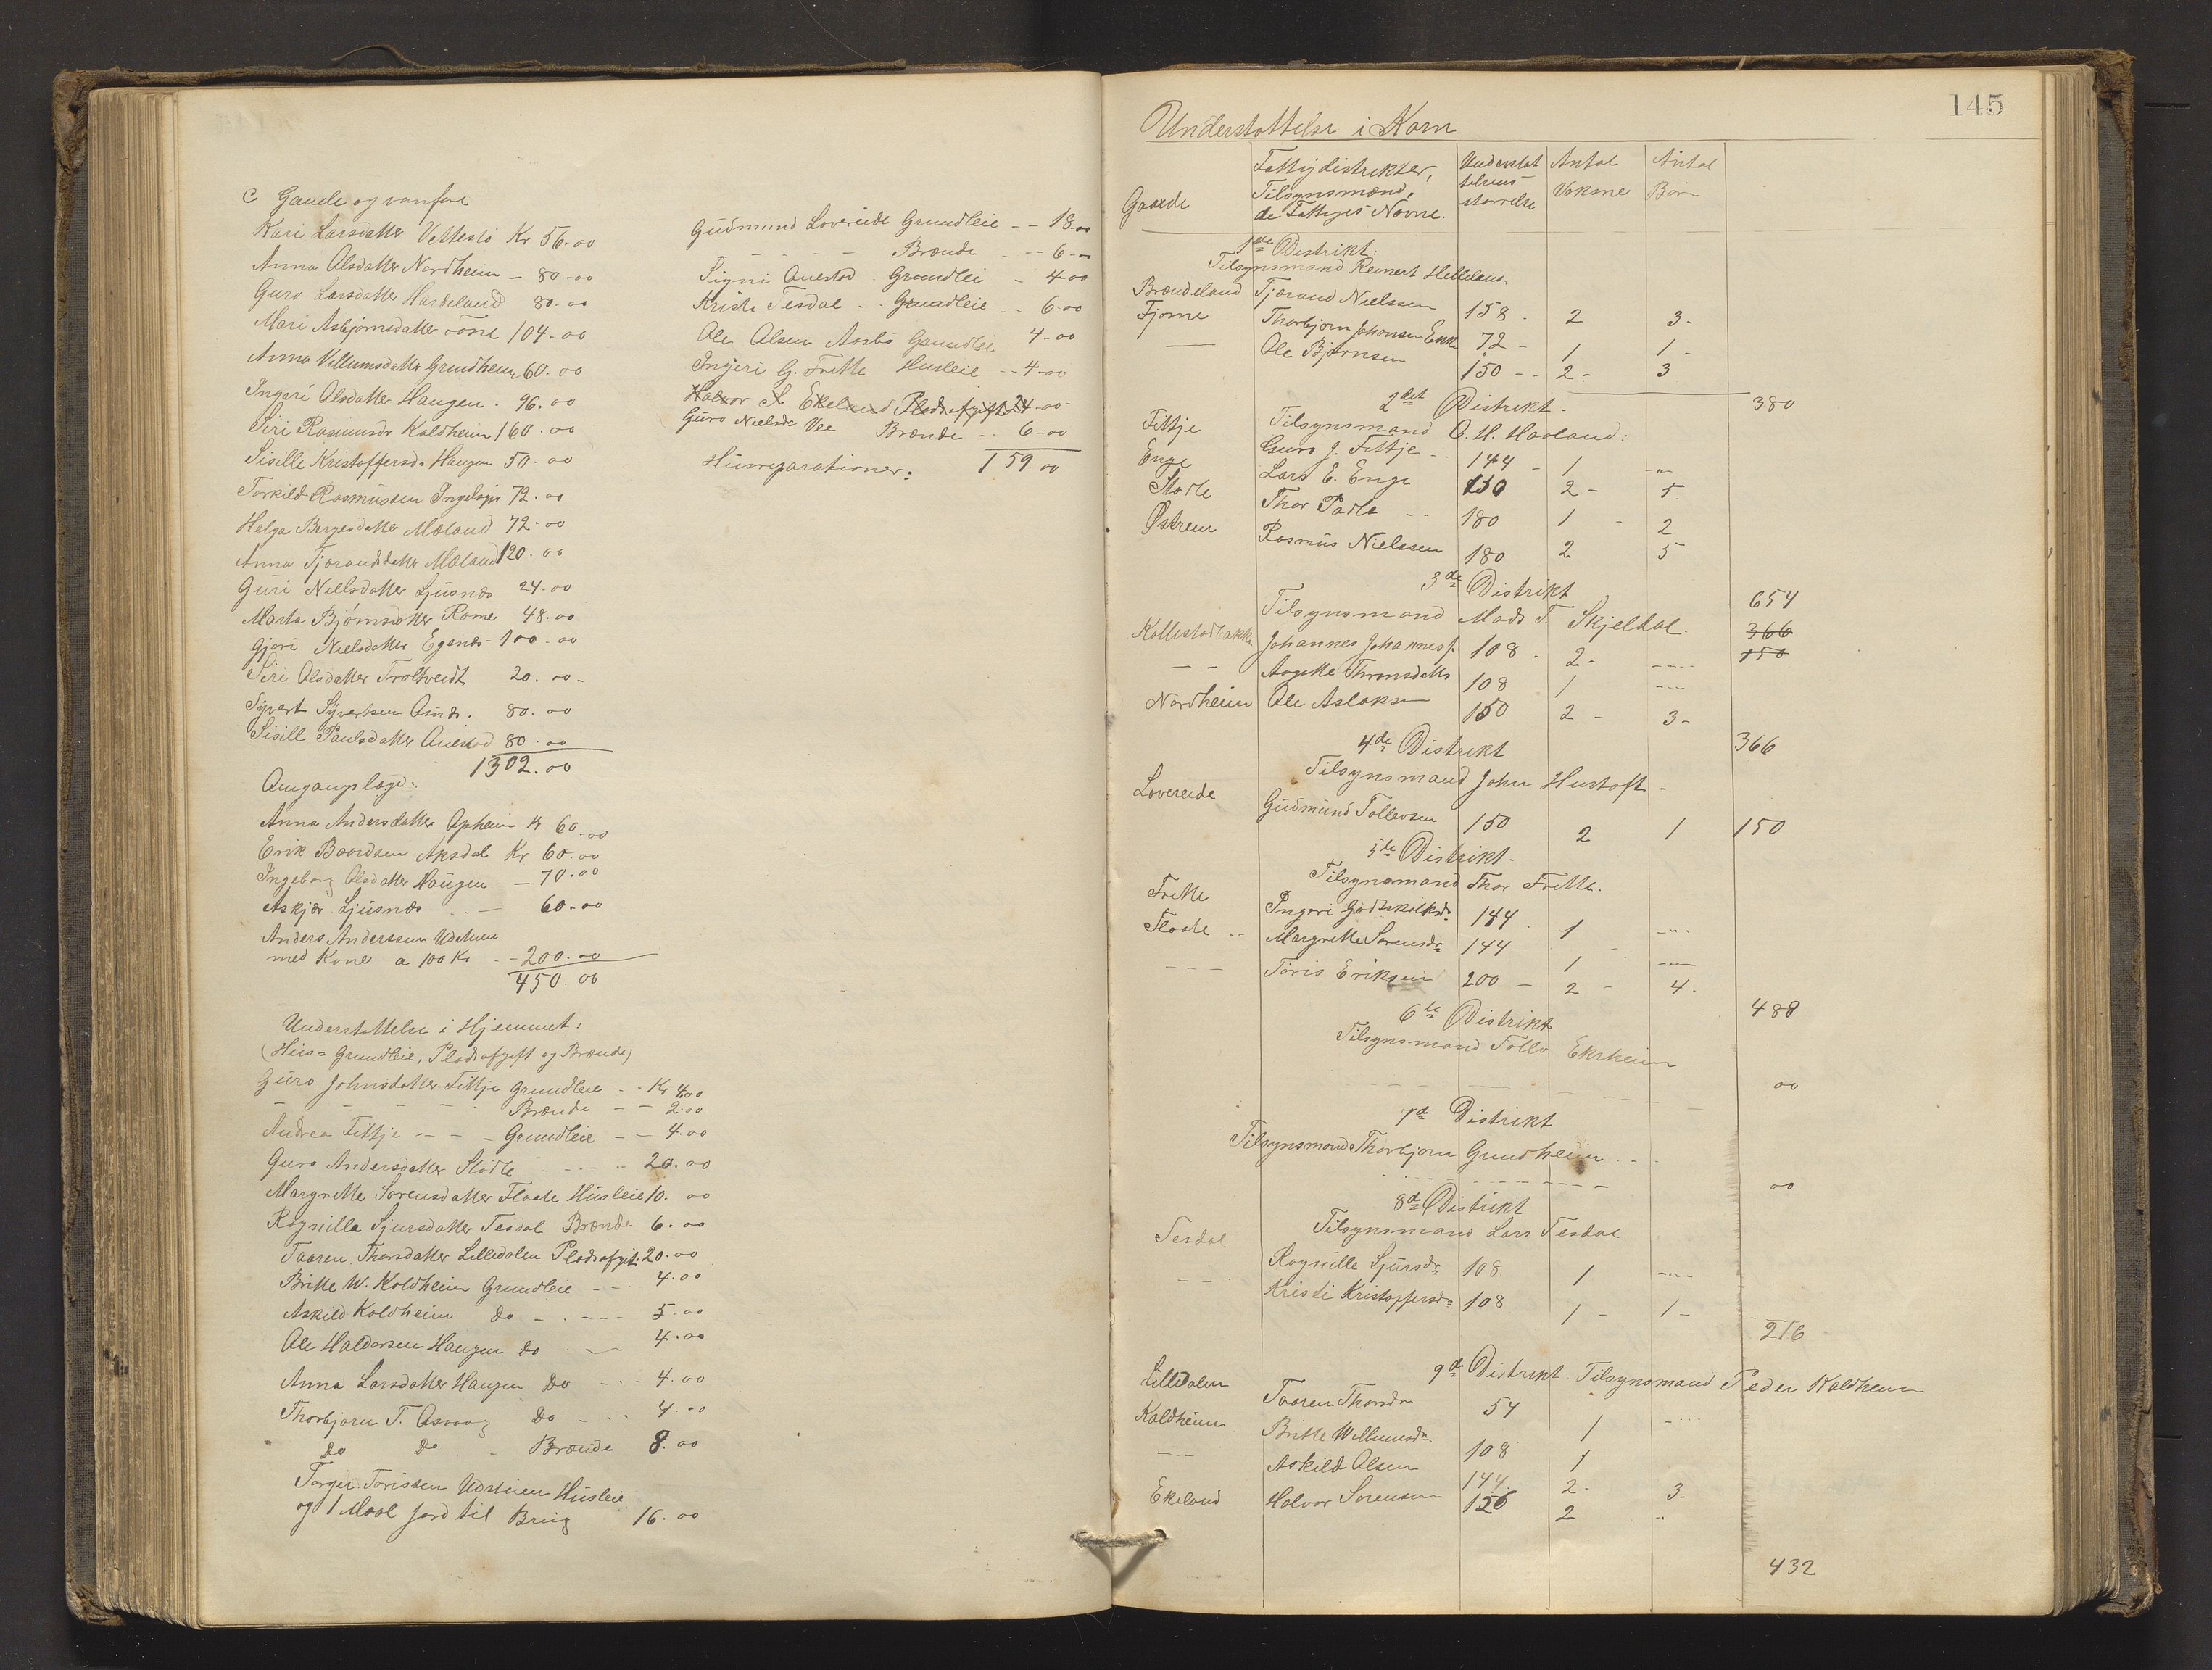 C Gamle og vanføre
Kari Larsdatter Vettestø Kr 56.00
Anna Olsdatter Nordheim - 80-00
Guro Larsdatter Hardeland 80.00
Mari Asbjørnsdatter Tøne 104.00
Anna Villumsdattr Grindheim 60.00
Ingeri Olsdatter Haugen. 96.00
Siri Rasmusdr Koldheim 160.00
Sisille Kristoffersd. Haugen 50.00
Torkild Rasmussen 72.00
Helga Børgesdatter Mæland 72.00
Anna Tjæransdatter Mæland 120.00
Guri Nielsdatter Ljusnæs 24.00
Marta Bjørnsdatter Rame 48.00
Gjøri Nielsdatter Egenæs 100-00
Siri Olsdatter Troltveidt 20.00-
Syvert Syvertsen 80.00
Sisill Paulsdatter Auestad 80.00
1302.00
Omgangslægd:
Anna Andersdatter Opheim Kr 60.00
Erik Baardsen Aksdal Kr 60.00
Ingeborg Olsdatter Haugen - 70.00
Askjær Ljusnæs - 60.00
Anders Anderssen Udstuen
med Kone a 100 Kr - 200.00
450.00
Understøttelse i Hjemmet:
(Hus= Grundleie, Pladsafgift og Brænde)
Guro Johnsdatter Fittje Grundleie - - Kr 4.00
- - - - - Brænde - - 2.00
Andrea Fittje - - - Grundleie - - 4.00
Guro Andersdatter Stødle - - - - 20.00
Margrette Sørensdatter Flaate Husleie 10.00
Rognilla Sjursdatter Tesdal Brænde 6.00
Taaren Thorsdatter Lilledalen Pladsafgift. 20.00
Britte W. Koldheim Grundleie - - 4.00
Askild Koldheim Do - - - - 5.00
Ole Haldorsen Haugen Do - 4.00
Anna Larsdatter Haugen Do - - 4.00
Thorbjørn T. Do - - 4.00
Do Do - Brænde 8.00
Torger Torissen Udstuen Husleie
og 1 Maal Jord til Brug 16.00
Gudmund Lovereide Grundleie - - 18.00
- - - - Brænde - - 6-00
Signi Auestad. Grundlei - 4-00
Kristi Tesdal - - Grundleie - - 6.00
Ole Olsen Aasbø Grundlei 4.00
Ingeri G. Frette Husleie - - 4-00
Halvor S. Ekeland Pladsafgift 24-00
Guro Nielsdr Vee Brænde - - 6-00
159.00
Husreparationer:
145
Understøttelse i Korn
Gaarde
Fattigdistrikter,
Tilsynsmænd,
de Fattiges Navne.
Understøt
telsens
størrelse
Antal
Voksne
Antal
Børn
1ste Distrikt:
Tilsynsmand Reinert Helleland.
Brændeland Tjærand Nielssen 158. 2 3-
Fjøme Thorbjørn Johansen Enke 72- 1 1-
— Ole Bjørnsen 150 - - 2- 3
380
2det Distrikt.
Tilsynsmand O. H. Haaland:
Fittje Guro J. Fittje - - 144 - 1 ---
Enge Lars E. Enge 150 2- 5
Stødle Thor Padla - - 180 1 - 2
Østrem Rasmus Nielssen 180 2 5
654
3de Distrikt
Tilsynsmand Mads T. Skjeldal.
366
150
Kallestadbakke Johannes Johannes. 108. 2- ----
- - Aagotte Thronsdattr 108 1 ---
Nordheim Ole Aslaksen 150 2- 3-
366
4de Distrikt
Tilsynsmand John Hustoft-
Lovereide Gudmund Tollevsen 150 2 1 150
5te Distrikt-
Tilsynsmand Thor Frette.
Frette Ingeri Godtskalksdr 144. 1 ---
Flaate - - Margrette Sørensdr 144 - 1 ---
- - - Toris Eriksen 200 - 2 - 4.
488
6te Distrikt
Tilsynsmand Tollo Ekrheim
- - - - - - 00
7de Distrikt
Tilsynsmand Thorbjørn Grindheim - -
- - - - - - 00
8de Distrikt
Tilsynsmand Lars Tesdal
Tesdal Rognille Sjursdr 108 1 ----
- - Kristi Kristoffersdr 108 1- 1-
216
9de Distrikt Tilsynsmand Peder Koldheim
Lilledalen Taaren Thorsdr 54 1 - ---
Koldheim Britte Willumsdr 108 1
- - Askild Olsen 144. 2- 3-
Ekeland Halvor Sørensen 126 2 ..
432